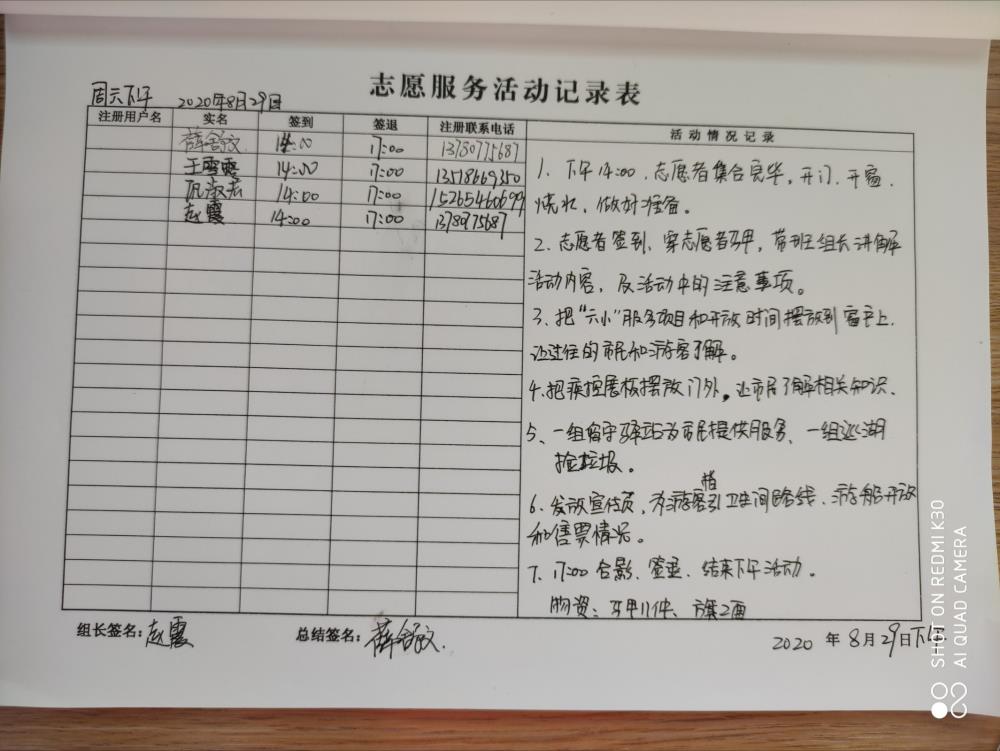 志愿服务活动记录表
周六下午 2020年8月29日
注册用户名 实名 签到 签退 注册联系电话 活动情况记录
薛舒文 14:00 17:00 13780775687
王雪霞 14:00 17:00 13578669350
14:00 17:00 15265460699
赵霞 14:00 17:00 1378975687
1、下午14:00,志愿者集合完毕,开门、开窗、
烧水,做好准备。
2、志愿者签到、穿志愿者马甲,带班组长讲解
活动内容,及活动中的注意事项。
3、把“六小”服务项目和开放时间摆放到窗户上,
让过往的市民和游客了解。
4、把疾控展板摆放门外,让市民了解相关知识、
5、一组留守驿站为市民提供服务、一组巡湖
捡垃圾。
6、发放宣传页,为游客指引卫生间路线、游船开放
和售票情况。
7、17:00合影、签退、结束下午活动。
物资:马甲11件、旗2面
组长签名:赵霞 总结签名:薛舒文. 2020 年 8 月 29 日下午
SHOT ON REDMI K30
AI QUAD CAMERA